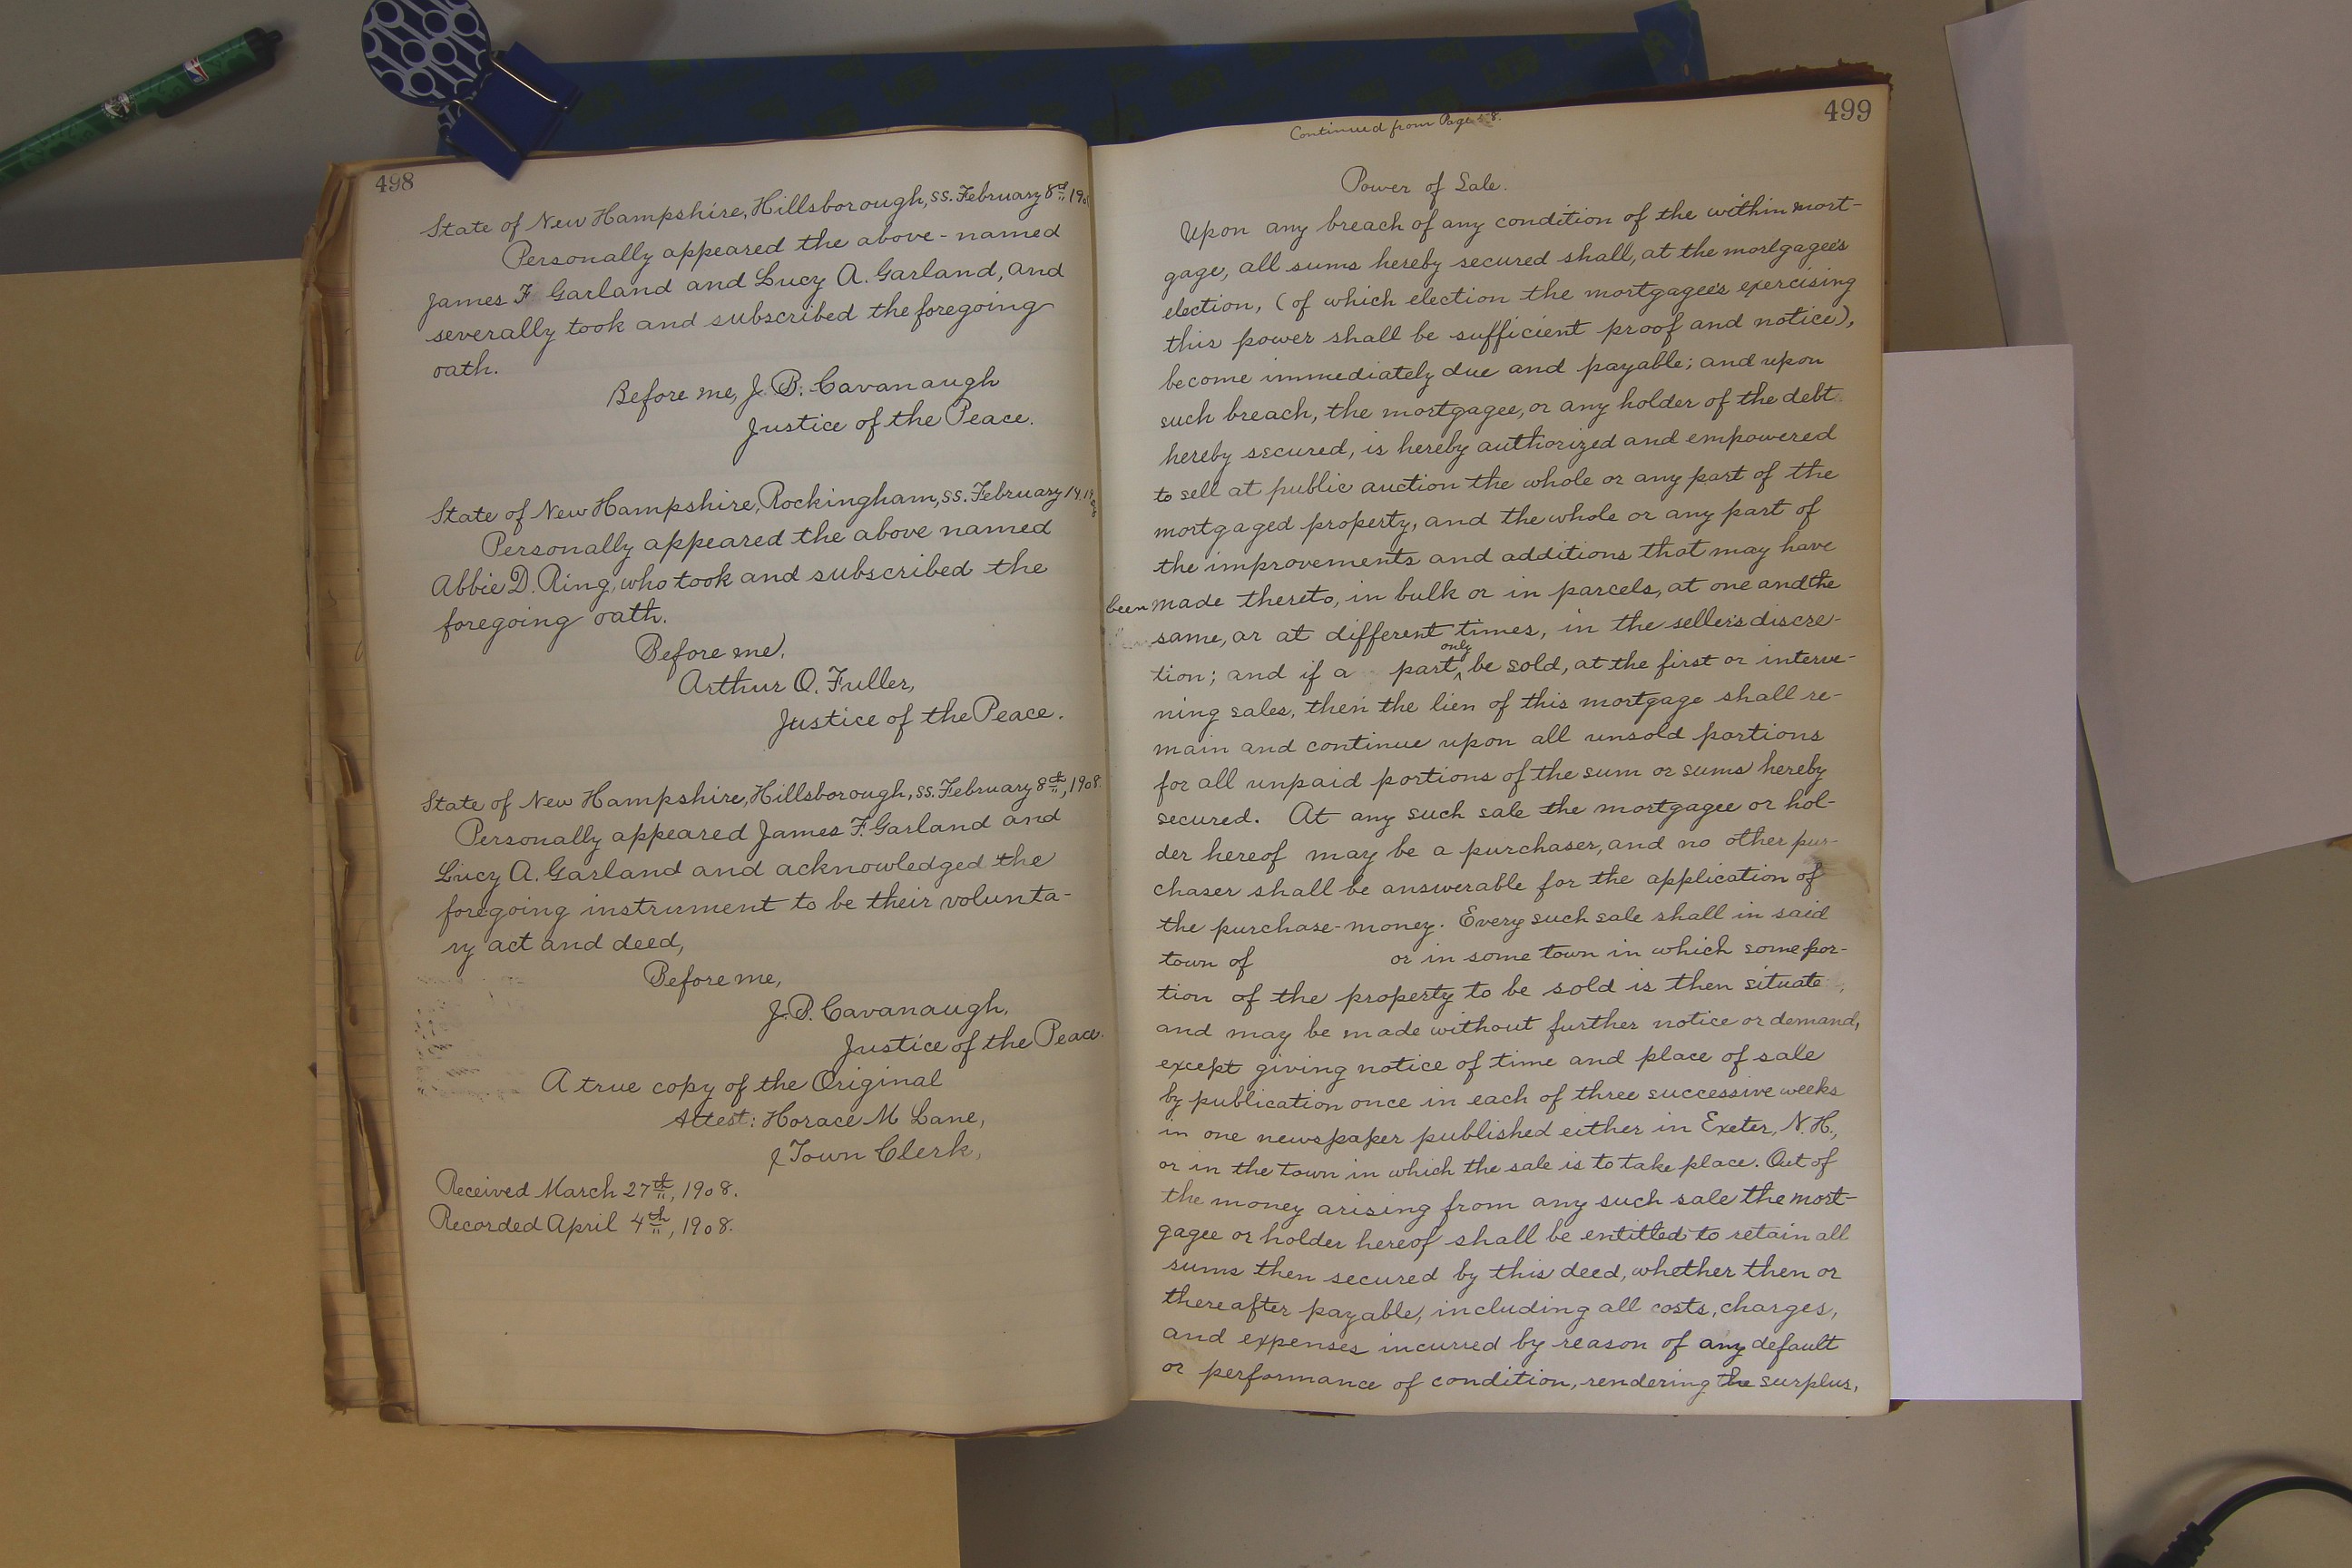 498
State of New Hampshire, Hillsborough, ss. February 8th, 190
Personally appeared the above-named
James F Garland and Lucy A. Garland, and
severally took and subscribed the foregoing
oath.
Before me, J. P. Cavanaugh
Justice of the Peace.
State of New Hampshire, Rockingham, ss. February 14, 19
Personally appeared the above named
Abbie D. Ring, who took and subscribed the
foregoing oath.
Before me,
Arthur O. Fuller,
Justice of the Peace.
State of New Hampshire, Hillsborough, ss. February 8th, 1908.
Personally appeared James F. Garland and
Lucy A. Garland and acknowledged the
foregoing instrument to be their volunta-
ry act and deed,
Before me,
J. P. Cavanaugh,
Justice of the Peace.
A true copy of the Original
Attest: Horace M Lane,
Town Clerk,
Received March 27th, 1908.
Recorded April 4th, 1908.
499
Continued from Page
Power of Sale.
Upon any breach of any condition of the within mort-
gage, all sums hereby secured shall, at the mortgagee's
election, (of which election the mortgagee's exercising
this power shall be sufficient proof and notice),
become immediately due and payable; and upon
such breach, the mortgagee, or any holder of the debt
hereby secured, is hereby authorized and empowered
to sell at public auction the whole or any part of the
mortgaged property, and the whole or any part of
the improvements and additions that may have
been made thereto, in bulk or in parcels, at one and the
same, or at different times, in the seller's discre-
tion; and if a part only be sold, at the first or interve-
ning sales, then the lien of this mortgage shall re-
main and continue upon all unsold portions
for all unpaid portions of the sum or sums hereby
secured. At any such sale the mortgagee or hol-
der hereof may be a purchaser, and no other pur-
chaser shall be answerable for the application of
the purchase-money. Every such sale shall in said
town of or in some town in which some por-
tion of the property to be sold is then situate,
and may be made without further notice or demand,
except giving notice of time and place of sale
by publication once in each of three successive weeks
in one newspaper published either in Exeter, N. H.,
or in the town in which the sale is to take place. Out of
the money arising from any such sale the mort-
gagee or holder hereof shall be entitled to retain all
sums then secured by this deed, whether then or
thereafter payable, including all costs, charges,
and expenses incurred by reason of any default
or performance of condition, rendering the surplus,